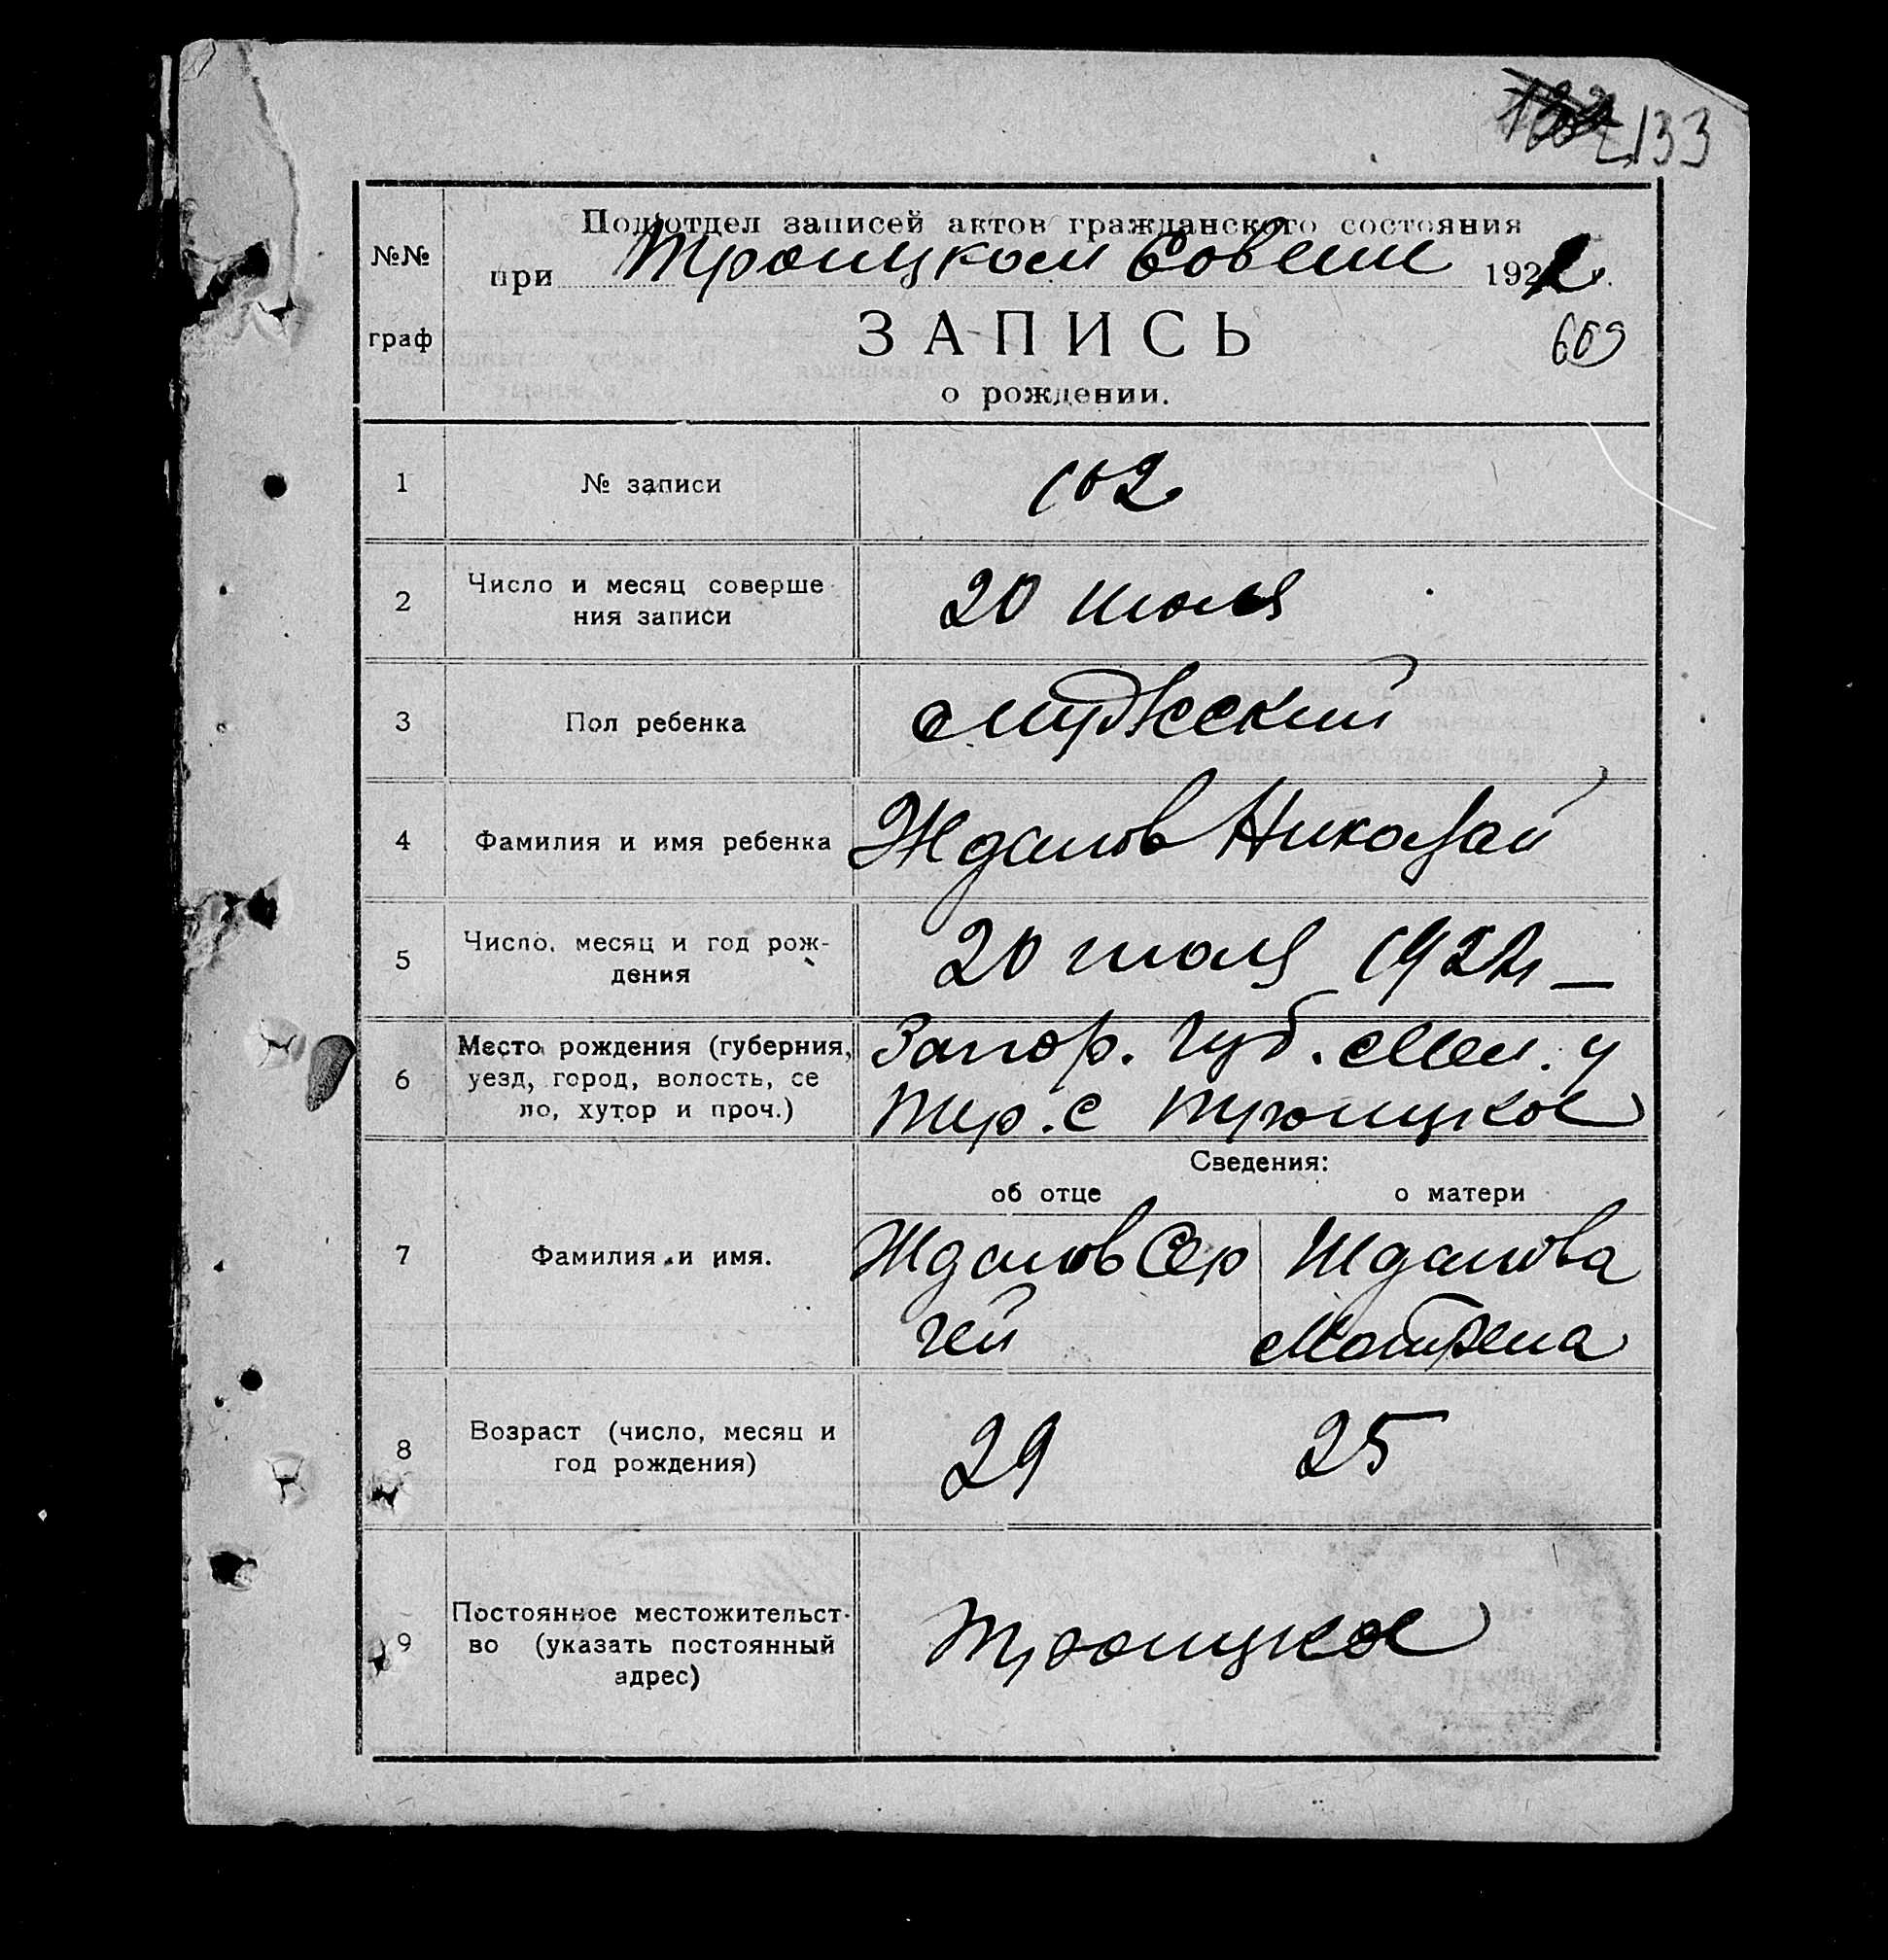 133
Подотдел записей актов гражданского состояния
№№
при Троицком Совете 1922.
граф
ЗАПИСЬ
609
о рождении.
1 № записи 102
2 Число и месяц соверше
ния записи 20 июля
3 Пол ребенка Мужеский
4 Фамилия и имя ребенка Жданов Николай
5 Число, месяц и год рож-
дения 20 июля 1922 —
6 Место рождения (губерния,
уезд, город, волость, се
ло, хутор и проч.)
Запор. губ. Мел. у
Тер. с Троицкое
Сведения:
об отце о матери
7 Фамилия и имя.
Жданов Сер Жданова
гей Матрена
8 Возраст (число, месяц и
год рождения) 29 25
9 Постоянное местожительст-
во (указать постоянный
адрес) Троицкое